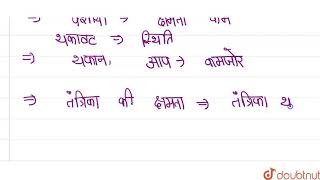 ⇒ क्षमता
थकावट ⇒ स्थिति
⇒ थकान, आप → कमजोर
⇒ तंत्रिका की क्षमता ⇒ तंत्रिका थ
doubtnut